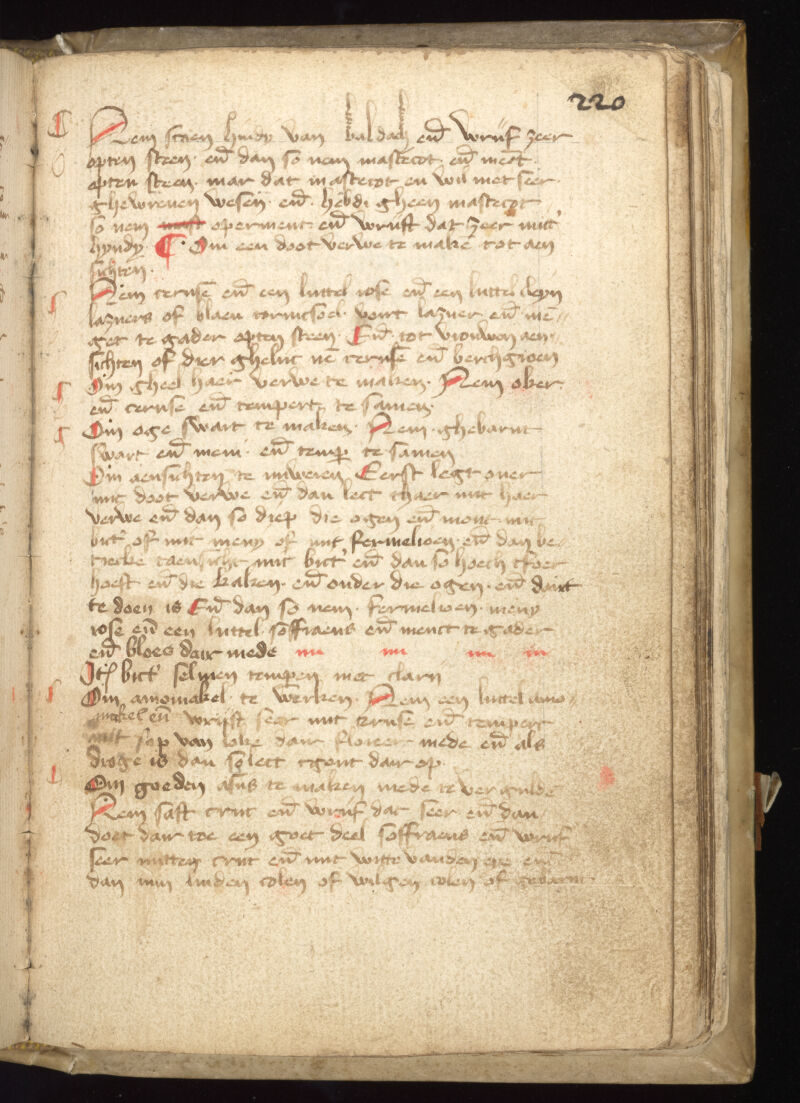 220
Nem steen hindy van baldach en̄ wrijf zeer
opten steen · en̄ dan so nem mastecot en̄ met
opten steen · mar dat mastecot en wil niet seer
ghewreven wesen · en̄ hebdi gheen mastecot
so nem operment en̄ wrijft dat zeer mit
hyndy · Om een doot verwe te makē tot aen
sichten ·
Nem ceruse en̄ een luttel rose en̄ een luttel
lazuers of blaeu tornicsoel · voirt lazuer en̄ mē
get te gader opten steen · En̄ tot vrouwen aen
sichten of dier ghelijc nē ceruse en̄ berchgroen
Om gheel haer verwe te maken · Nem oker
en̄ ceruse en̄ tempert te samen
Om oge swart te maken · Nem ghebarnt
swart en̄ meni · en̄ temp̄ te samen
Om aensichten te Eerst legt over
mit doot verwe en̄ dan lect thaer mit haer
verwe en̄ dan so diep die ogen en̄ mont mit
bict' of mit meny of mit fermelioen · en̄ dan be
trecke taensicht mit bict' en̄ dan so hoech tfoer
hoeft en̄ die kaken · en̄ onder die ogen · en̄ dairt
te doen is En̄ dan so nem · fermelioen · meny
rose en̄ een luttel soffraens en̄ menct te gader
en̄ bloes dair mede
It̄ bict' selmen tempen met claryn
Om amomakel · te werken · Nem een luttel amo
makel en̄ wrijft seer mit ceruse en̄ tempert
mit sop van loke dair floreer mede en̄ als
droge is dan so lect tgout dair op
Om goeden asijs te maken mede te vergulde
Nem saft crijt en̄ wrijf dat seer en̄ dan
doet dair toe een goet deel soffraens en̄ wrijf
seer mitten crijt en̄ mit witte vanden eye en̄
dan nim linden colen of wilgen colen of gebarnt